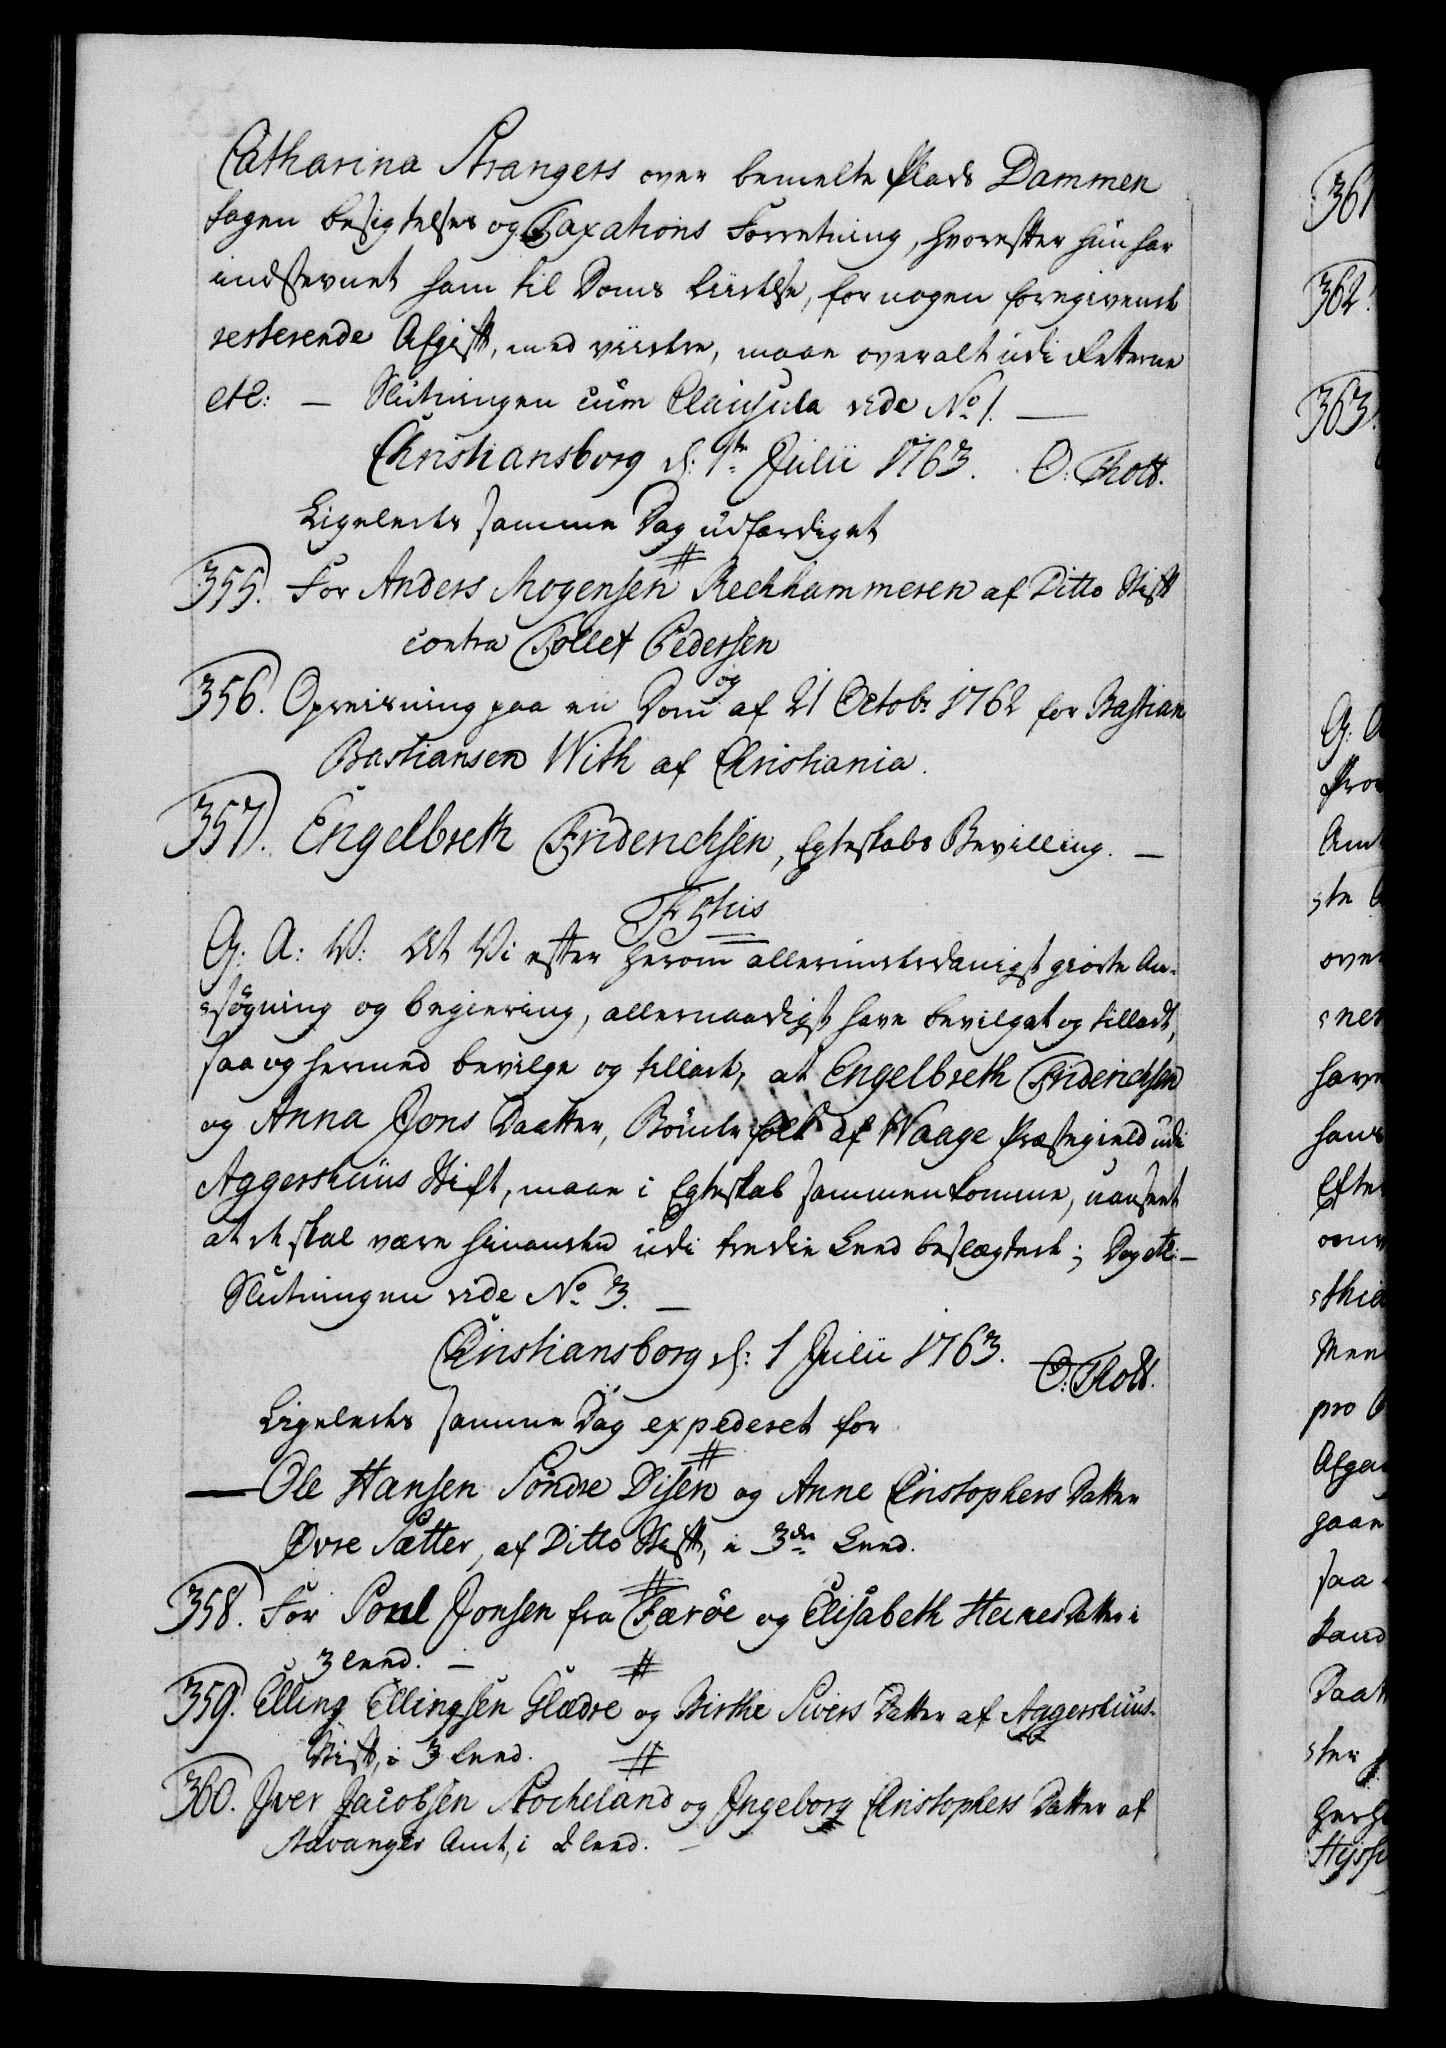 Catharina Strangers over bemelte Plads Dammen
tagen Besigtelses og Taxations Forretning, hvorefter hun har
indstevnet ham til Doms Liidelse, for nogen foregivende
resterende Afgift, med viidere, maae overalt udi Retterne
etc: — Slutningen cum Clausula vide No. 1. —
Christiansborg d: 1te Julii 1763. O: Thott.
Ligeledes samme Dag udfærdiget
355. For Anders Mogensen Reckhammeren af Ditto Stift
contra Tollef Pedersen
356. Opreisning paa en Dom og af 21 Octobr 1762 for Bastian
Bastiansen With af Christiania.
357. Engelbreth Friderichsen, Egteskabs Bevilling. —
F 5tus
G: A: W: At Vi efter herom allerunderdanigst giorte An-
søgning og begiering, allernaadigst have bevilget og tilladt,
saa og hermed bevilge og tillade, at Engelbreth Friderichsen
og Anna Jons Daatter, Bøndefolk af Waage Præstegield udi
Aggershuus Stift, maae i Egteskab sammenkomme, uanseet
at de skal være hinanden udi tredie Leed beslægtede; Dog etc: —
Slutningen vide No. 3. —
Christiansborg d: 1 Julii 1763. O: Thott.
Ligeledes samme Dag expederet for
— Ole Hansen Söndre Disen og Anne Cristophers Datter
Øvre Sætter, af Ditto Stift, i 3die Leed.
358. For Poul Jonsen fra Færöe og Elisabeth Heines Datter i
3 Leed. —
359. Elling Ellingsen Glædre og Birthe Sivers Datter af Aggershuus-
Stift, i 3 Leed.
360. Iver Jacobsen Stocheland og Ingeborg Christophers Datter af
Stavanger Amt, i 2 Leed. —
361
362.
363.